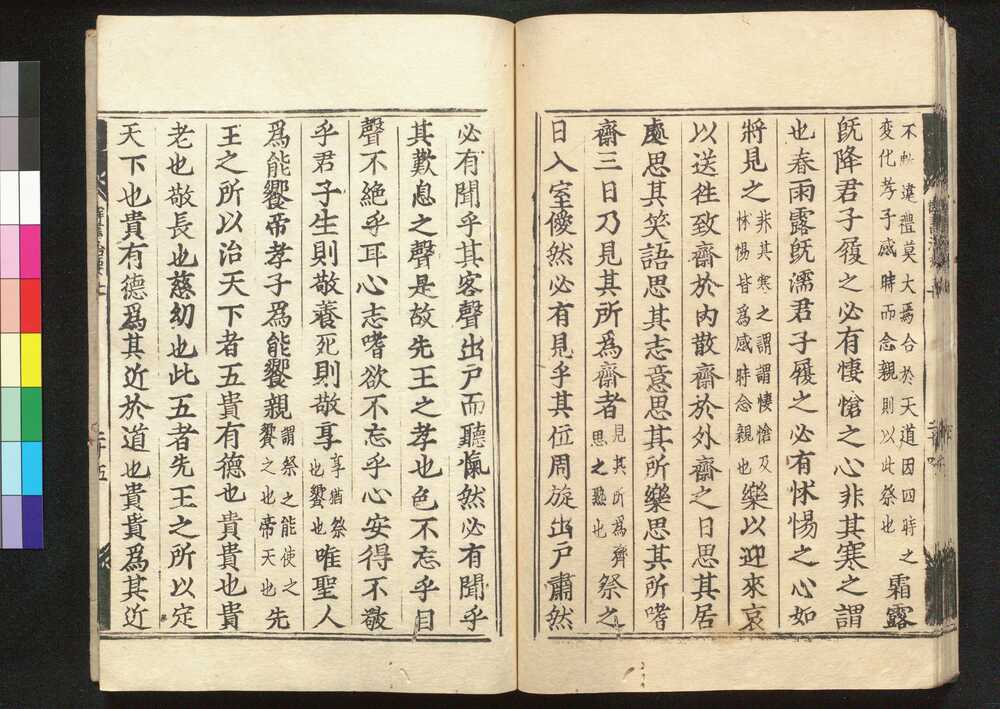 不敬違禮莫大焉合於天道因四時之
變化孝子感時而念親則以此祭也
霜露
旣降君子履之必有悽愴之心非其寒之謂
也春雨露旣濡君子履之必有怵惕之心如
將見之非其寒之謂謂悽愴及
怵惕皆爲感時念親也樂以迎來哀
以送往致齋於內散齋於外齋之日思其居
處思其笑語思其志意思其所樂思其所嗜
齋三日乃見其所爲齋者見其所爲齊
思之熟也祭之
日入室僾然必有見乎其位周旋出戶肅然
必有聞乎其容聲出戶而聽愾然必有聞乎
其歎息之聲是故先王之孝也色不忘乎目
聲不絕乎耳心志嗜欲不忘乎心安得不敬
乎君子生則敬養死則敬享享猶祭
也饗也唯聖人
爲能饗帝孝子爲能饗親謂祭之能使之
饗之也帝天也先
王之所以治天下者五貴有德也貴貴也貴
老也敬長也慈幼也此五者先王之所以定
天下也貴有德爲其近於道也貴貴爲其近
二十五